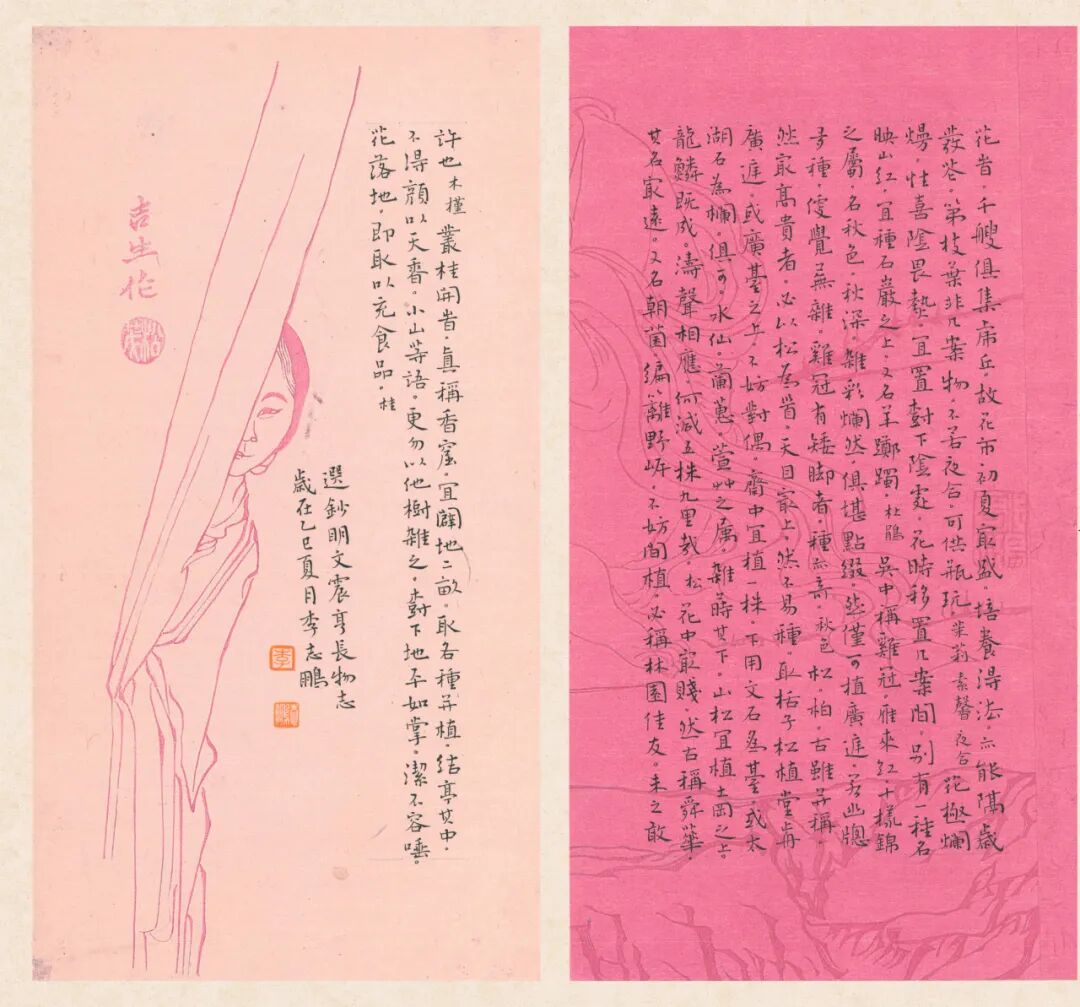 花旹。千艘俱集虎丘。故花市初夏冣盛。培養淂法。亦能隔歲
發花。第枝葉非几案物。不若夜合。可供瓶玩。茉莉素馨夜合 花極爛
熳。性喜陰畏熱。宜置樹下陰處。花時移置几案間。别有一種名
映山紅。宜種石巖之上。又名羊躑躅。杜鵑 吳中稱雞冠。雁來紅。十樣錦
之屬。名秋色。秋深。雜彩爛然。俱堪點綴。然僅可植廣庭。若幽牎
多種。便覺蕪雜。雞冠有矮脚者。種亦奇。秋色 松。柏。古雖並稱。
然冣高貴者。必以松為首。天目冣上。然不易種。取栝子松植堂前
廣庭。或廣臺之上。不妨對偶。齋中宜植一株。下用文石為臺。或太
湖石為欄。俱可。水仙。蘭蕙。萱艸之属。雜蒔其下。山松宜植土岡之上。
龍鱗既成。濤聲相應。何減五株九里哉。松 花中冣賤。然古稱舜華。
其名冣遠。又名朝菌。編籬野岸。不妨間植。必稱林園佳友。未之敢
許也 木槿 叢桂開旹。真稱香窟。宜闢地二畝。取各種並植。結亭其中。
不淂顔以天香。小山等語。更勿以他樹雜之。樹下地平如掌。潔不容唾。
花落地。即取以充食品。桂
選鈔明文震亨長物志
歲在乙巳夏月李志鵬
李
吉生作